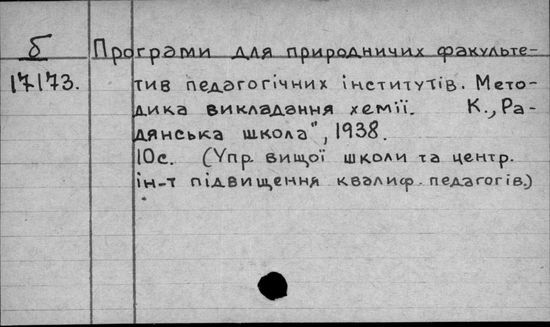 Б Програми для природничих факульте-
17173. тив педагогічних інститутів. Мето-
дика викладання хемії. К., Ра-
дянська школа", 1938.
10с. (Упр. вищої школи та центр.
ін-т підвищення квалиф. педагогів.)